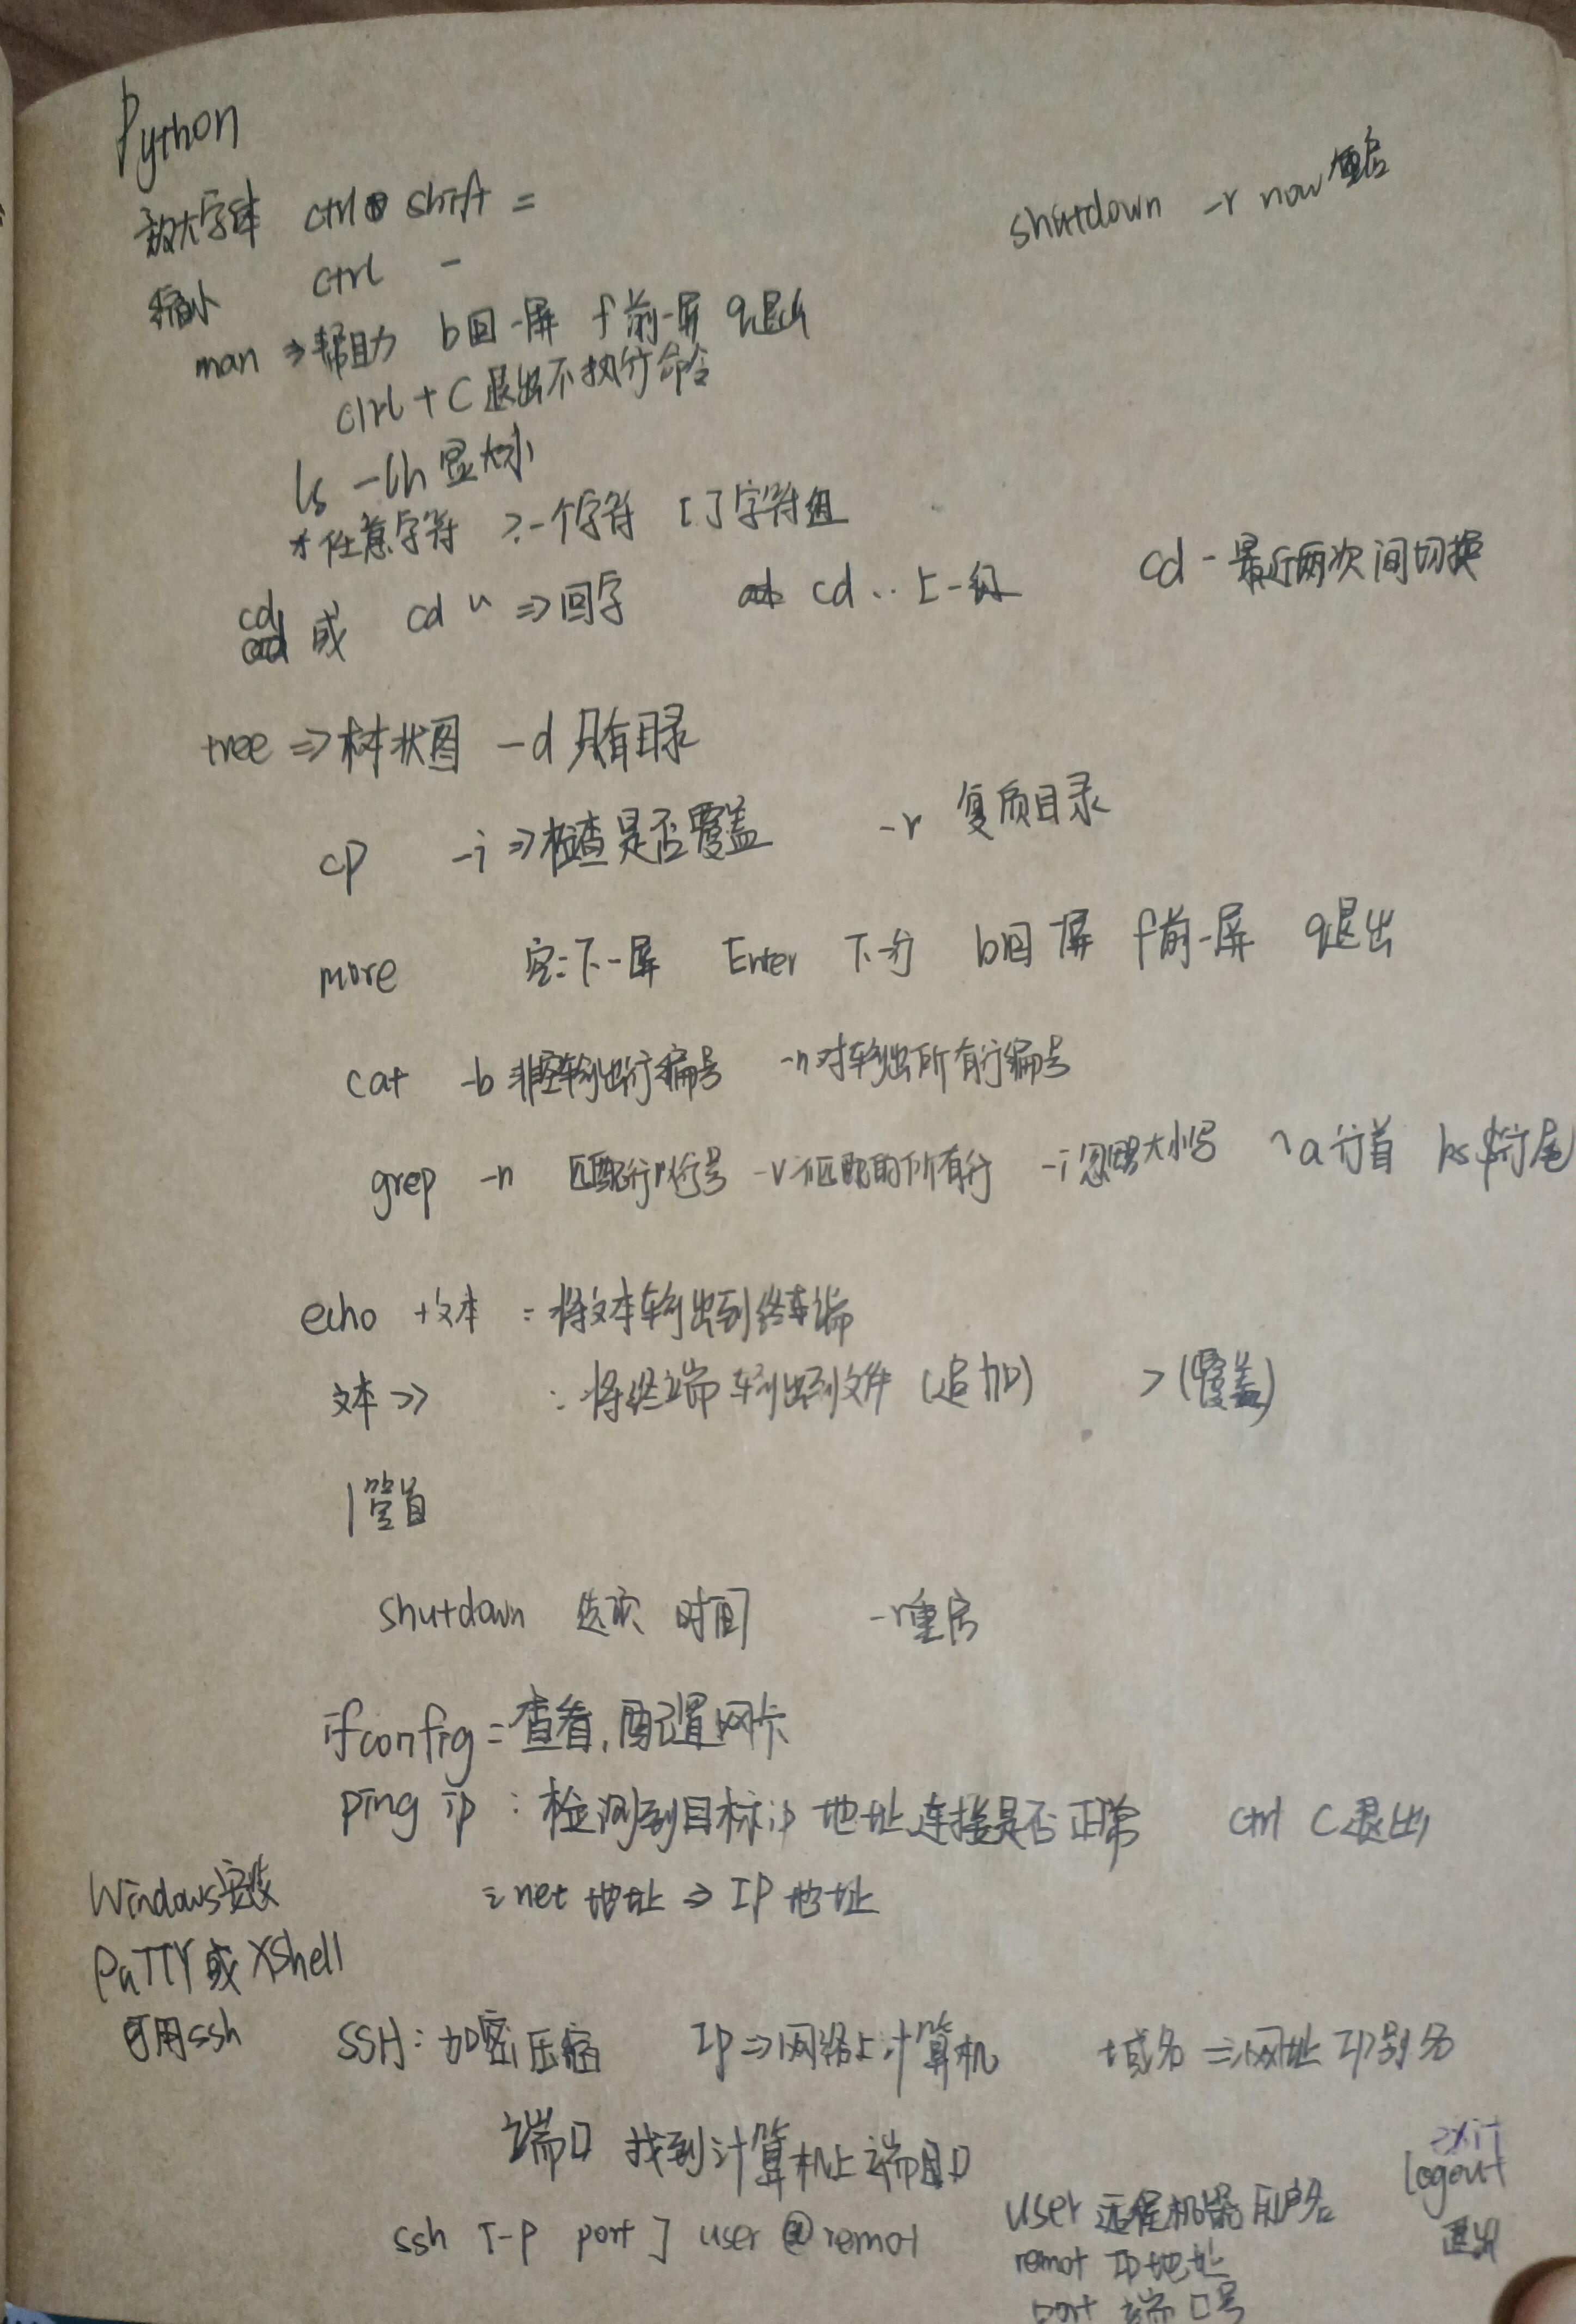 Python
放大字体 ctrl shift =
shutdown -r now 重启
缩小 ctrl -
man ⇒帮助 b回一屏 f前一屏 q退出
ctrl + C 退出不执行命令
ls -lh 显大小
*任意字符 ?一个字符 []字符组
cd 或 cd ~ ⇒回字 cd .. 上一级 cd - 最近两次间切换
tree ⇒树状图 -d 只有目录
cp -i ⇒检查是否覆盖 -r 复质目录
more 空:下一屏 Enter 下一行 b回一屏 f前一屏 q退出
cat -b 非空输出行编号 -n对输出所有行编号
grep -n 匹配行行号 -v 不匹配的所有行 -i忽略大小写 ^a行首 ks$行尾
echo +文本 : 将文本输出到终端
文本 >> : 将终端输出到文件 (追加) > (覆盖)
| 管道
shutdown 选项 时间 -r重启
ifconfig = 查看,配置网卡
ping ip : 检测到目标ip 地址连接是否正常 ctrl C退出
inet 地址 ⇒ IP 地址
Windows安装
PuTTY或XShell
可用ssh
SSH: 加密压缩 IP⇒网络上计算机 域名⇒网址 IP别名
端口 找到计算机上端口
exit
logout
退出
ssh [-p port] user @remot
user 远程机器用户名
remot IP地址
port 端口号